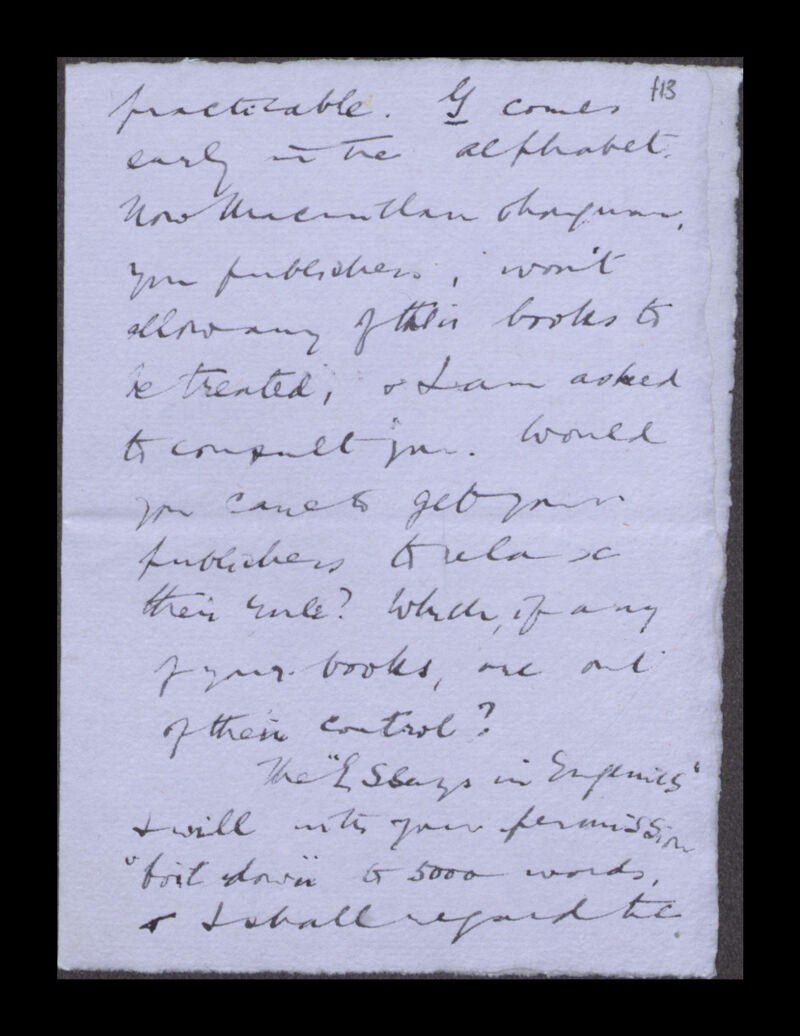 f13
practicable. G comes
early in the alphabet.
Now Macmillan
your publishers, won't
allow any of their books to
be treated, & I am asked
to consult you. Would
you care to get your
publishers to relax
their rule? Which, if any
of your books, are out
of their control?
The "Essays in Eugenics"
I will with your permission
"boil down" to 5000 words,
& I shall regard the